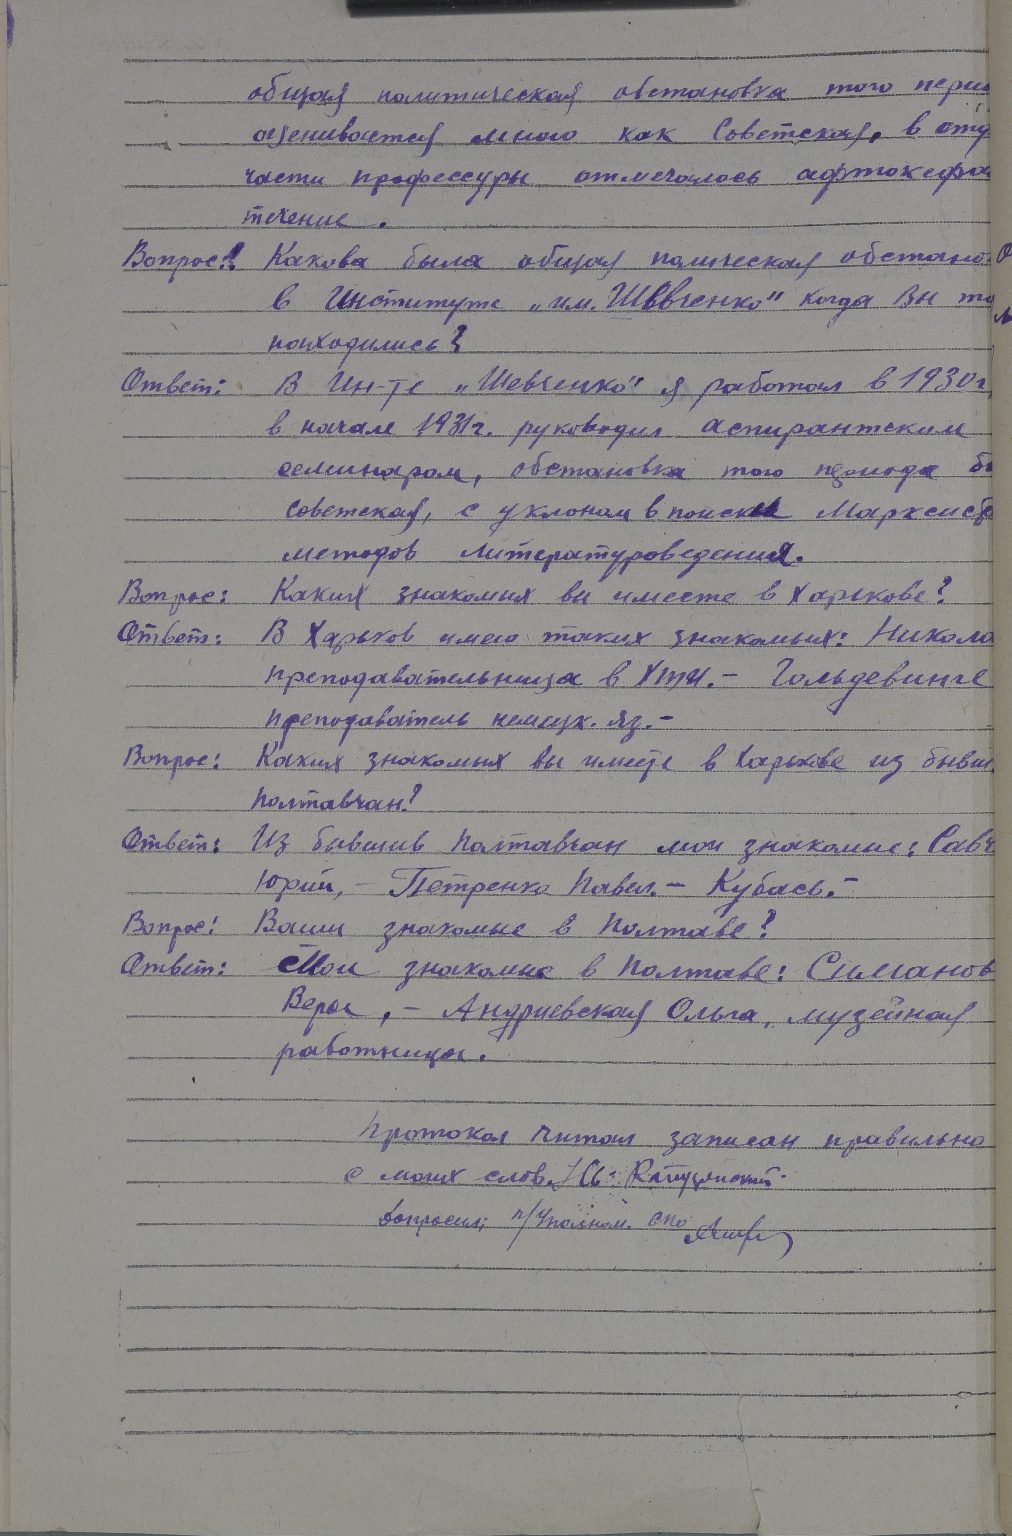 общая политическая обстановка того перио
оценивается мною как Советская, в отд
части профессуры отмечалось афтокефа
течение.
Вопрос: Какова была общая полическая обстанов
в Институте „им. Шевченко" когда Вы та
находились?
Ответ: В Ин-те „Шевченко" я работал в 1930 г
в начале 1931 г. руководил аспирантским
семинаром, обстановка того периода бы
советская, с уклоном в поиски Марксист
методов литературоведения.
Вопрос: Каких знакомых вы имеете в Харькове?
Ответ: В Харьков имею таких знакомых: Никола
преподавательница в ХТИ. – Гольдевинге
преподаватель немецк. яз. –
Вопрос: Каких знакомых вы имеете в Харькове из бывш
полтавчан?
Ответ: Из бывшив Полтавчан мои знакомые: Савч
Юрий, – Петренко Павел. – Кубась. –
Вопрос: Ваши знакомые в Полтаве?
Ответ: Мои знакомые в Полтаве: Симанов
Вера, – Андриевская Ольга, музейная
работница.
Протокол читал записан правильно
с моих слов.
Допросил: п/Уполном. СПО